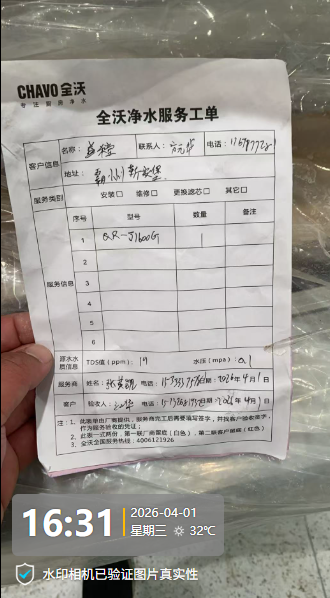 CHAVO全沃
专注厨房净水
全沃净水服务工单
客户信息 名称： 联系人： 电话：
地址：
服务类别 安装□ 维修□ 更换滤芯□ 其它□
服务信息 序号 型号 数量 备注
1 QR-J1600G 1
2
3
4
5
6
源水水质信息 TDS值（ppm）：19 水压（mpa）：0.1
服务商 姓名： 电话： 日期：2026年4月1日
客户 验收人： 电话： 日期：2026年4月1日
注：1、此表单由厂商提供，服务商完工后需要填写签字，并找客户验收签字，
作为服务验收的凭证；
2、此表一式两份，第一联厂商留底（白色），第二联客户留底（红色）
3、全沃全国服务热线：4006121926
16:31
2026-04-01
星期三 32℃
水印相机已验证图片真实性